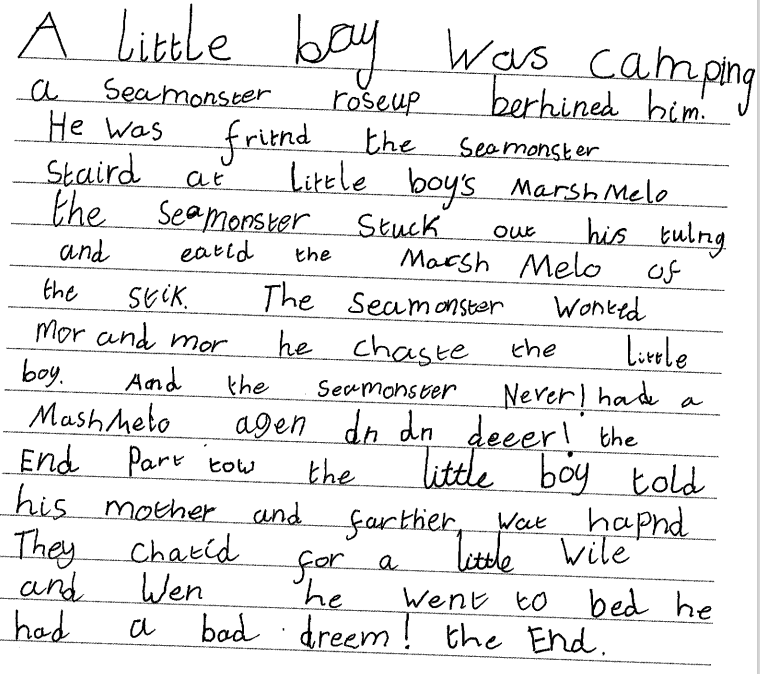 A little boy was camping
a seamonster roseup berhined him.
He was fritnd the seamonster
staird at little boy's MarshMelo
the seamonster stuck out his tulng
and eatid the Marsh Melo of
the stik. The seamonster wonted
mor and mor he chaste the little
boy. And the seamonster Never! had a
MashMelo agen dn dn deeer! the
End Part tow the little boy told
his mother and farther, wat hapnd
They chatid for a little wile
and wen he went to bed he
had a bad dreem! the End.